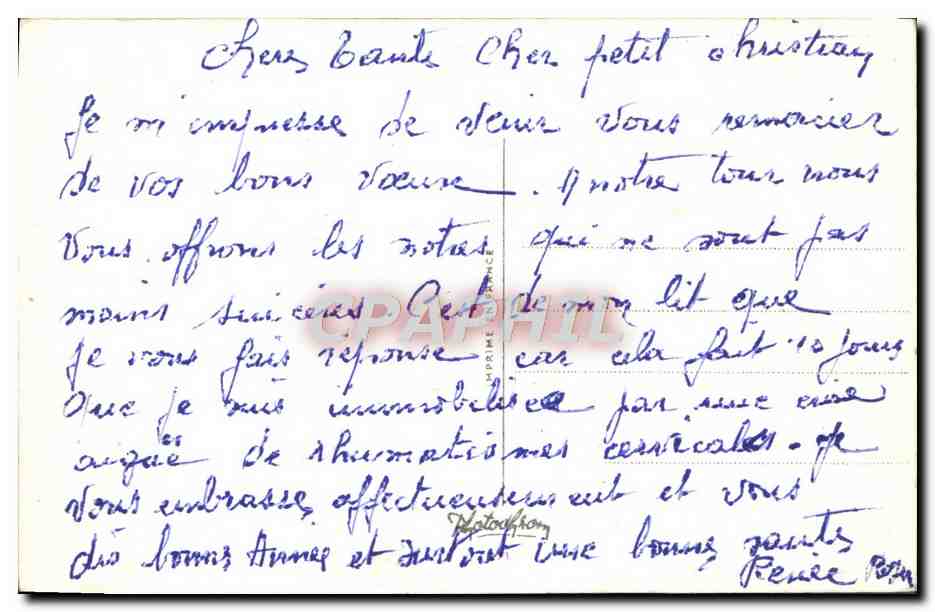 Chere Tante Cher petit Christian
Je m'empresse de venir vous remercier
de vos bons vœux. A notre tour nous
vous offrons les notres qui ne sont pas
moins sincères. C'est de mon lit que
je vous fais réponse car cela fait 10 jours
que je suis immobilisée par une crise
aigüe de rhumatismes cervicales. Je
vous embrasse affectueusement et vous
dis bonne Année et surtout une bonne santé
Renée
IMPRIME EN FRANCE
CPAPHIL